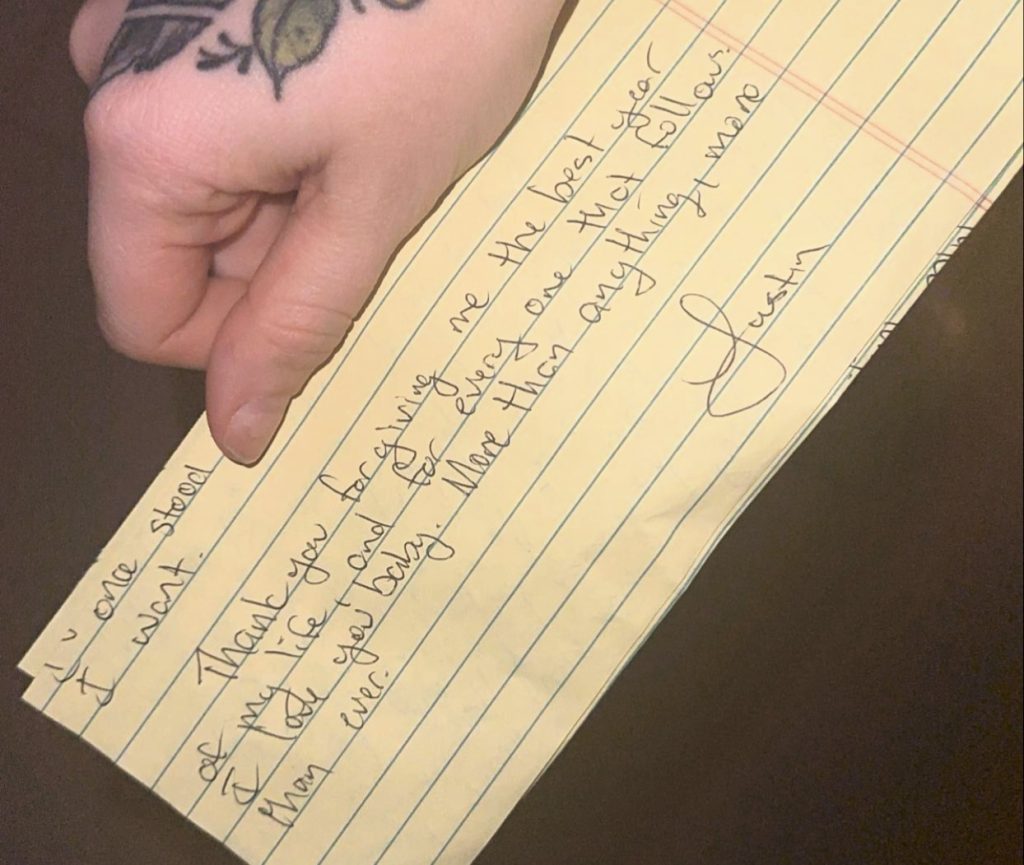 once stood
I want.
Thank you for giving me the best year
of my life, and for every one that follows.
I love you baby. More than anything, more
than ever.
Justin